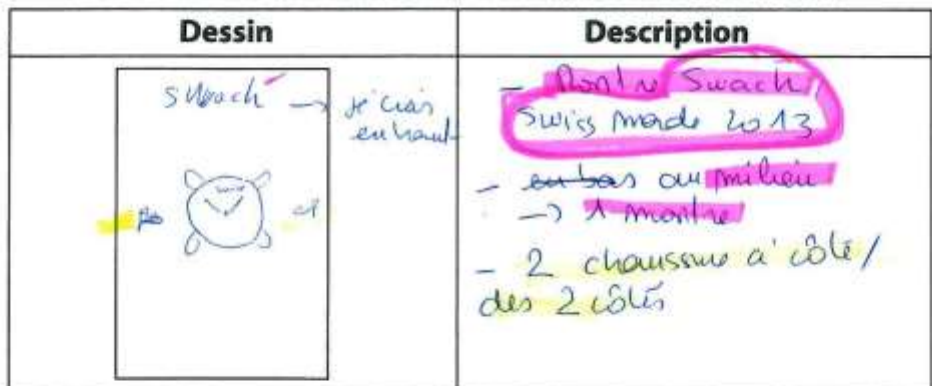 Dessin
Description
swach → je crois
en haut
- Montre Swach
Swiss made 2013
- en bas au milieu
→ 1 montre
- 2 chaussure à côté /
des 2 côtés